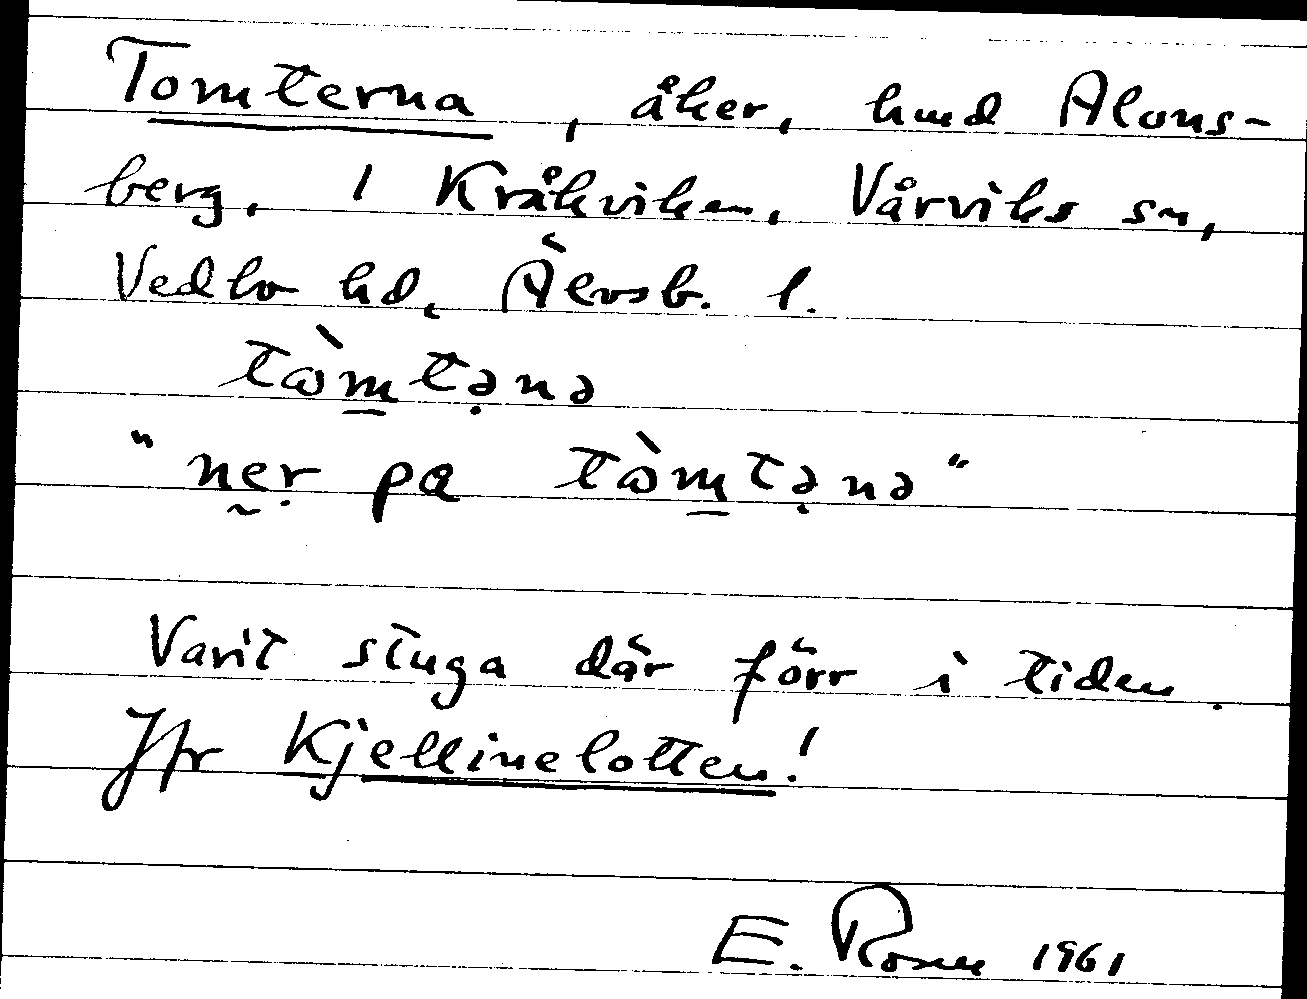 Tomterna, åker, hmd Alons-
berg, 1 Kråkviken, Vårviks sn,
Vedbo hd, Älvsb. l.
tὼm̲tə̣nə
"nẹr pa tὼm̲tə̣nə"
Varit stuga där förr i tiden.
Jfr Kjellinelotten!
E. Rosen 1961